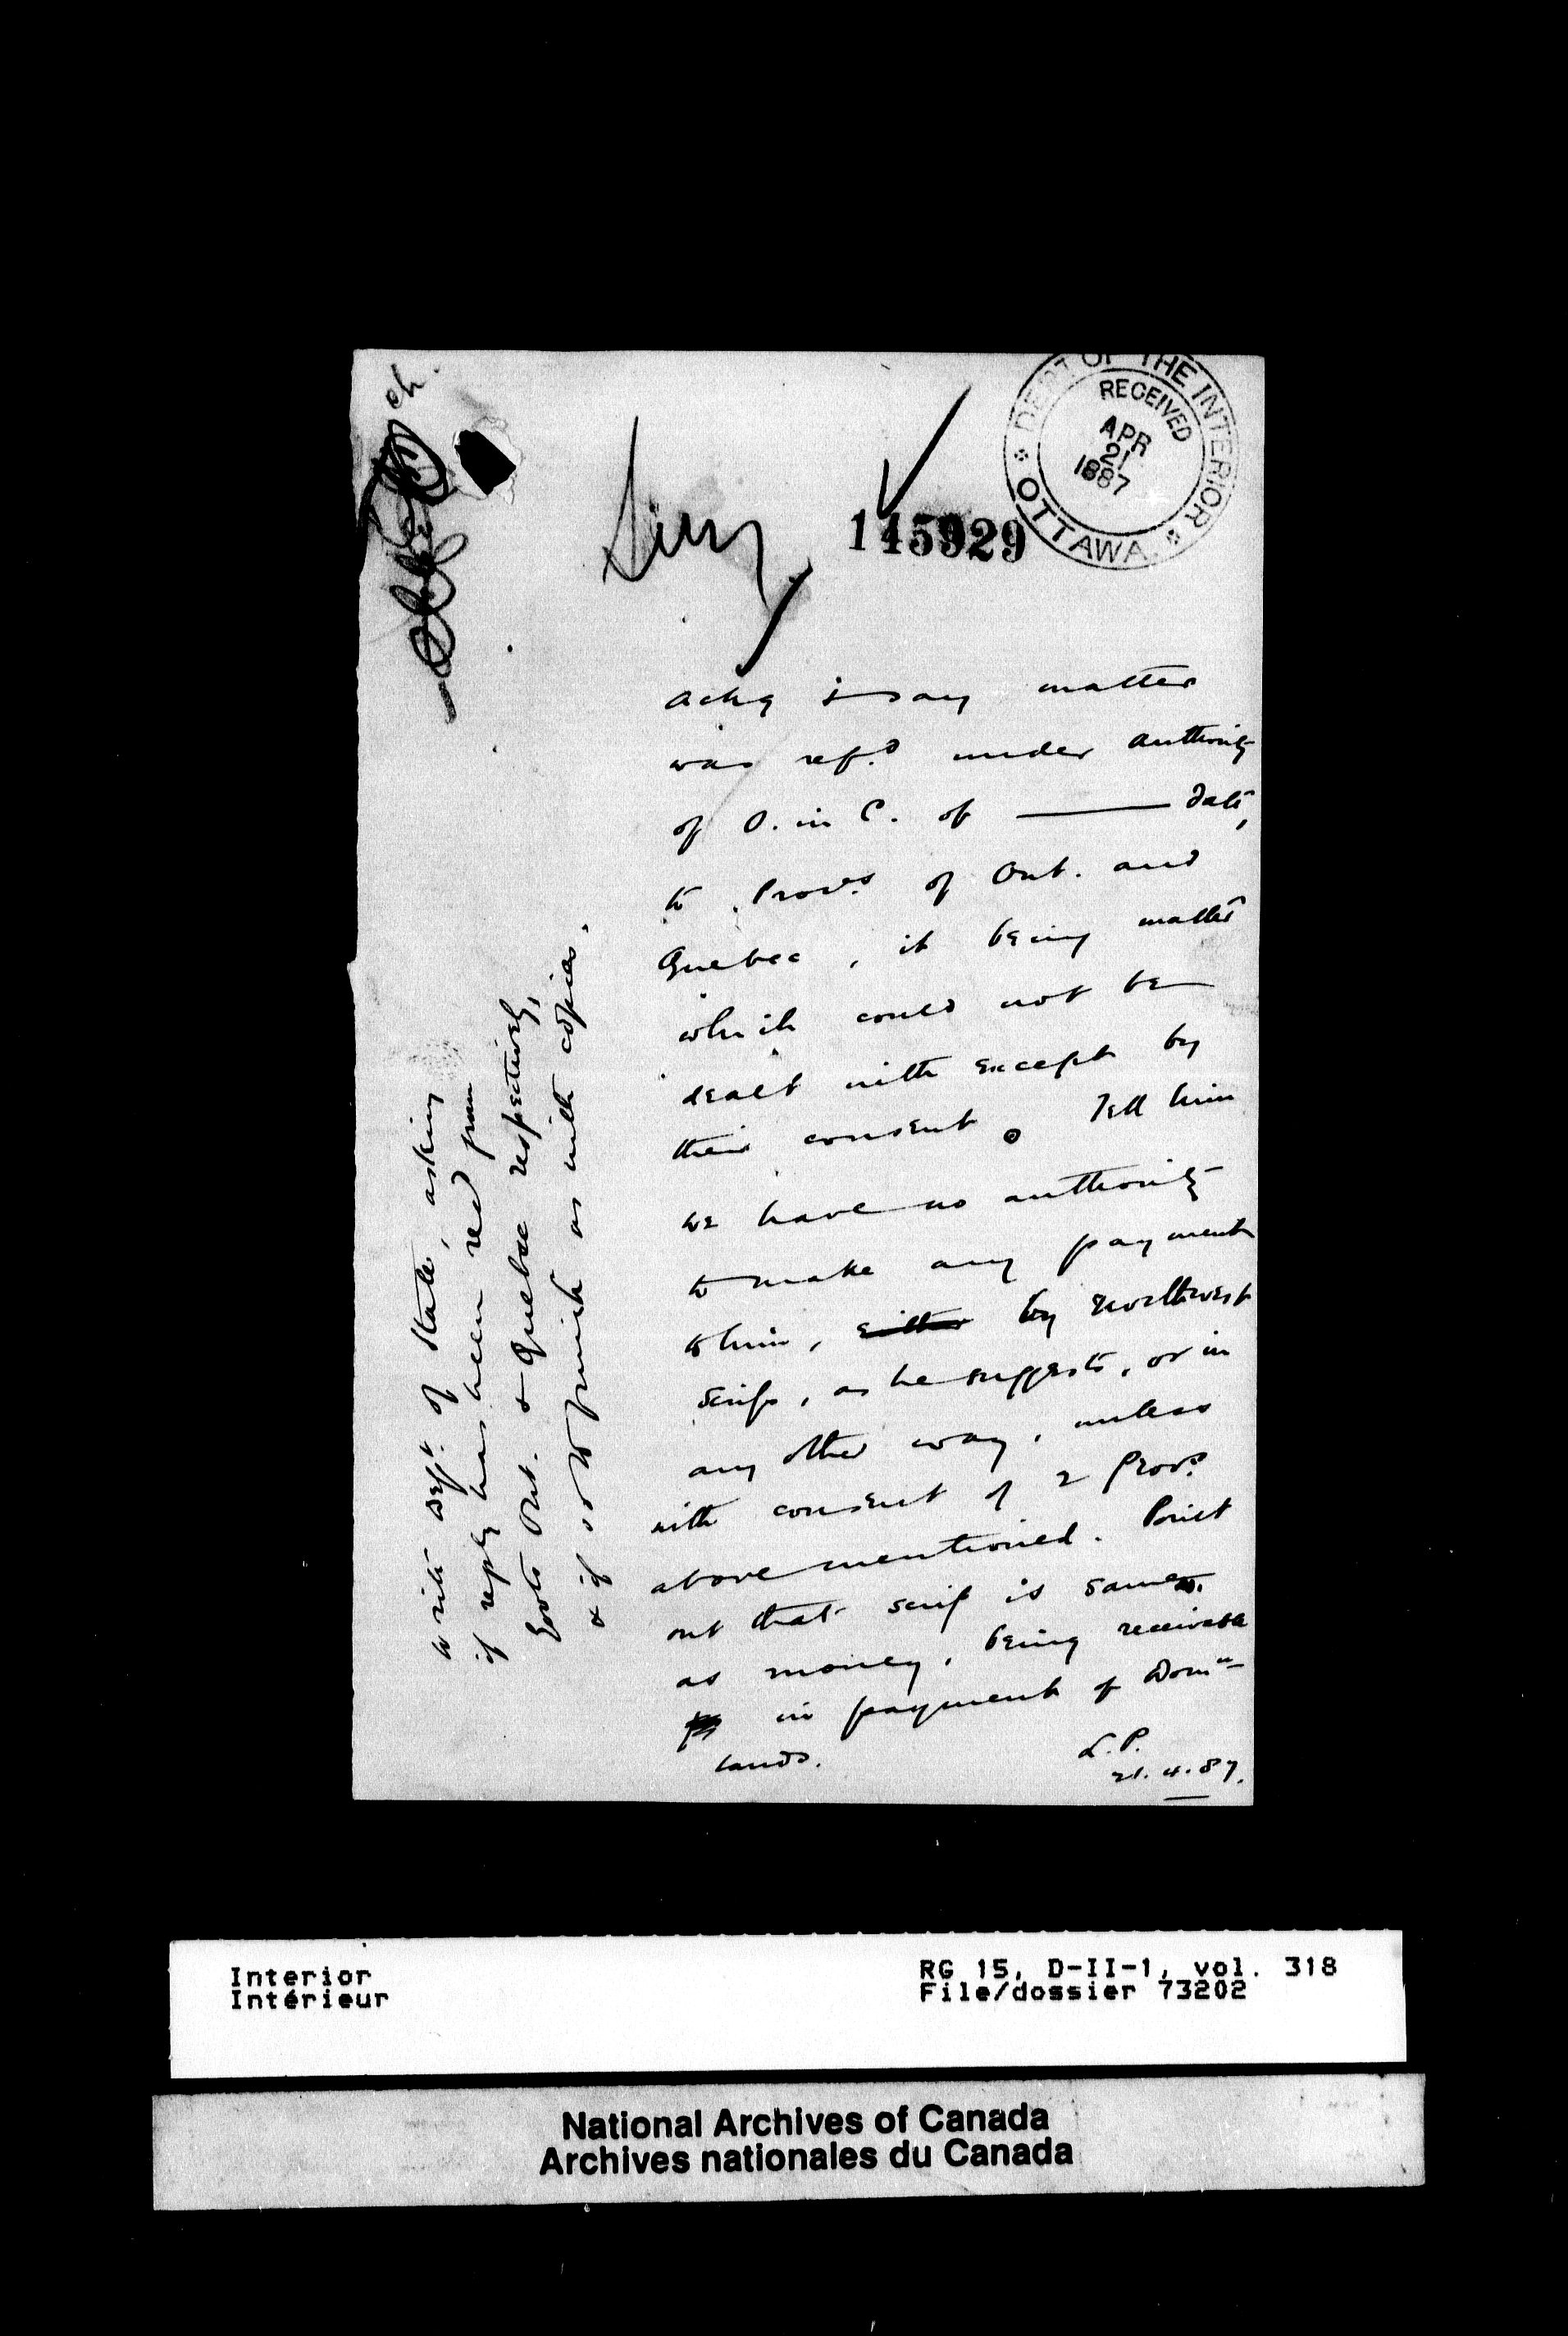 DEPT OF THE INTERIOR
RECEIVED
APR
21
1887
OTTAWA
145929
Ackg & say matter
was refd under authority
of O. in C. of ——— date,
to Provs of Ont. and
Quebec, it being matter
which could not be
dealt with except by
their consent. Tell him
we have no authority
to make any payment
to him, either by Northwest
scrip, as he suggests, or in
any other way, unless
with consent of 2 Provs
above mentioned. Point
out that scrip is same
as money, being receivable
in payment of Domn
lands.
L.P.
21.4.87.
Write Dept. of State, asking
if reply has been recd from
Govts Ont. & Quebec respectively,
& if so to furnish us with copies.
Interior
Intérieur
RG 15, D-II-1, vol. 318
File/dossier 73202
National Archives of Canada
Archives nationales du Canada